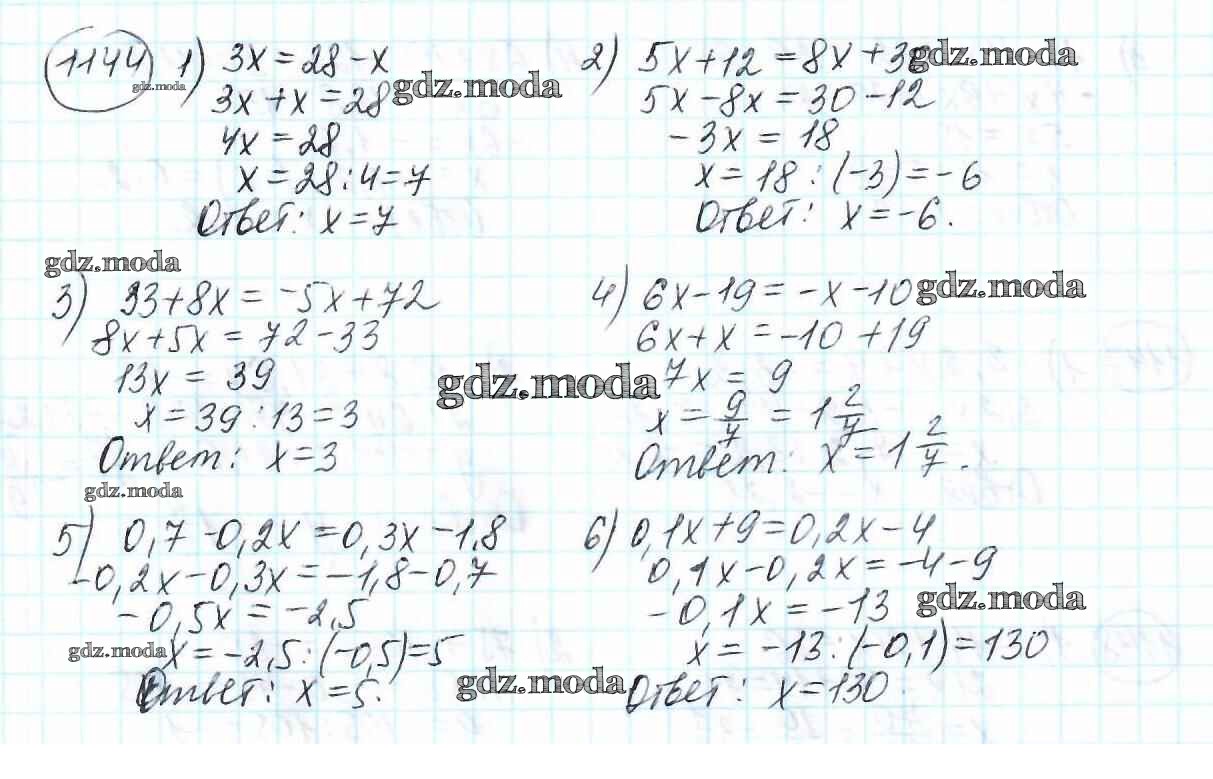 1144
1) 3x = 28 - x
3x + x = 28
4x = 28
x = 28 : 4 = 7
Ответ: x = 7
2) 5x + 12 = 8x + 30
5x - 8x = 30 - 12
- 3x = 18
x = 18 : (-3) = - 6
Ответ: x = -6.
3) 33 + 8x = -5x + 72
8x + 5x = 72 - 33
13x = 39
x = 39 : 13 = 3
Ответ: x = 3
4) 6x - 19 = -x - 10
6x + x = -10 + 19
7x = 9
x = 9/7 = 1 2/7
Ответ: x = 1 2/7.
5) 0,7 - 0,2x = 0,3x - 1,8
-0,2x - 0,3x = -1,8 - 0,7
- 0,5x = -2,5
x = -2,5 : (-0,5) = 5
Ответ: x = 5.
6) 0,1x + 9 = 0,2x - 4
0,1x - 0,2x = -4 - 9
- 0,1x = -13
x = -13 : (-0,1) = 130
Ответ: x = 130.
gdz.moda
gdz.moda
gdz.moda
gdz.moda
gdz.moda
gdz.moda
gdz.moda
gdz.moda
gdz.moda
gdz.moda